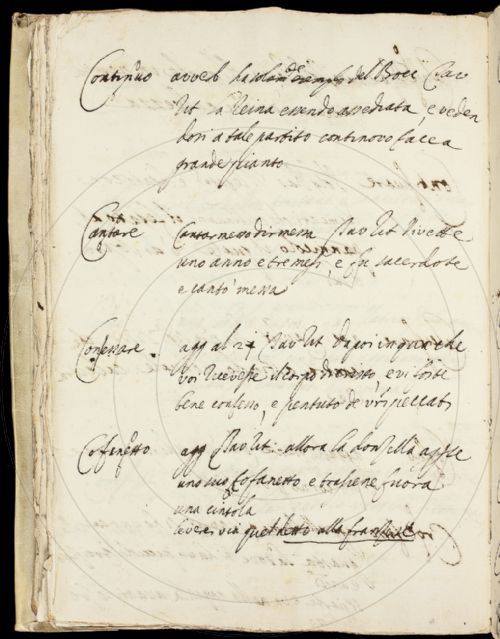 Continuo avverb ha solam de esempio del Bocc Tav
Rit la Reina essendo assediata, e veden
dosi a tale partito continovo facea
grande pianto
Cantare Cantar messa dir messa Tav Rit Vivette
uno anno e tre mesi, e fu sacerdote
e cantò messa
Confessare. agg al 24 Tav Rit Dapoi in qua che
voi riceveste il corpo di cristo, e vi foste
bene confesso, e pentuto de vrĩ peccati
Cofanetto agg Tav Rit allora la donzella aprse
uno suo Cofanetto, e trassene fuora
una cintola